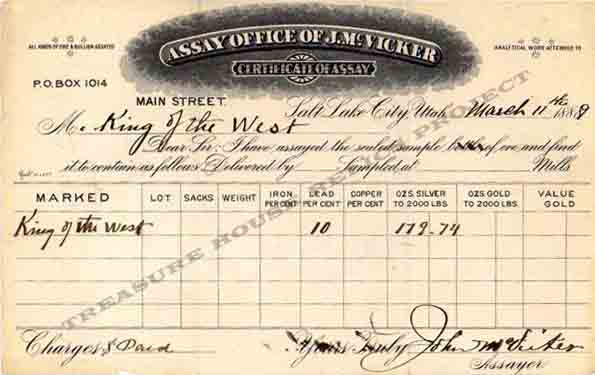 ASSAY OFFICE OF J. McVICKER
ALL KINDS OF ORE & BULLION ASSAYED
CERTIFICATE OF ASSAY
ANALYTICAL WORK ATTENDED TO
P.O. BOX 1014
MAIN STREET.
Salt Lake City, Utah, March 11th 1889
M. King of the West
Dear Sir: I have assayed the sealed sample of ore and find
it to contain as follows Delivered by Sampled at Mills
MARKED LOT SACKS WEIGHT IRON PER CENT LEAD PER CENT COPPER PER CENT OZS. SILVER TO 2000 LBS. OZS. GOLD TO 2000 LBS. VALUE GOLD
King of the West 10 179.74
Charges $ Paid Yours Truly John McVicker
Assayer
TREASURE HOUSE RELICS PROJECT